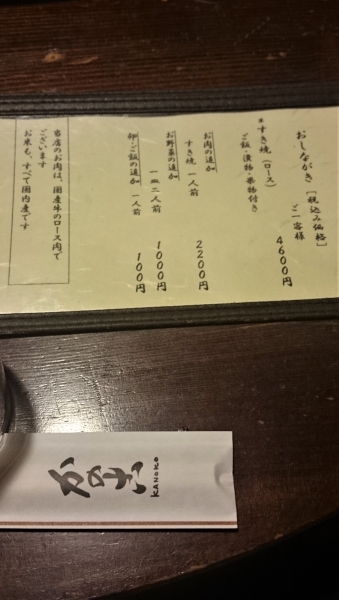 おしながき［税込み価格］
ご一客様
＊すき焼（ロース） 4600円
ご飯・漬物・果物付き
お肉の追加
すき焼 一人前 2200円
お野菜の追加
一皿二人前 1000円
卵・ご飯の追加 一人前 100円
当店のお肉は、国産牛のロース肉で
ございます
お米も、すべて国内産です
かのこ
KANOKO